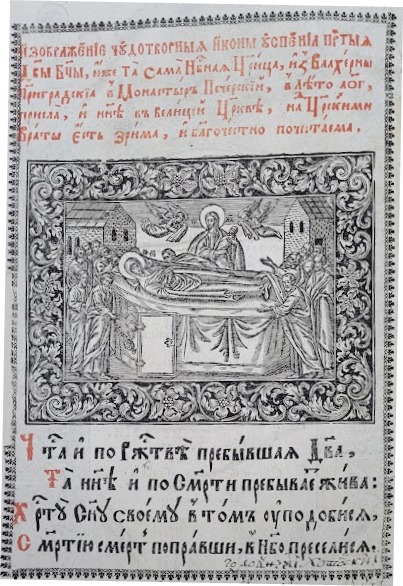 Изображенїе чꙋдотворныѧ иконы ᲂуспенїѧ прⷭ҇тыѧ
Бцⷣы, юже та сама Нб҃наѧ Цр҃ица, из Влахерны
Цариградскїѧ в Монастырь Печерскїй, в лѣто ҂аог҃,
присла, и нн҃ѣ въ великой Цр҃квѣ, на Цр҃скими
враты єсть зрима, и бл҃гочестно почитаема.
Чⷭ҇та и по Ржⷭ҇твѣ пребывшаѧ Дв҃а,
Та нн҃ѣ и по См҃рти пребываетъ жива:
Хрⷭ҇тꙋ Сн҃ꙋ своемꙋ в томъ ᲂуподобисѧ,
См҃ртїю смерть поправши, в Нб҃о преселисѧ.